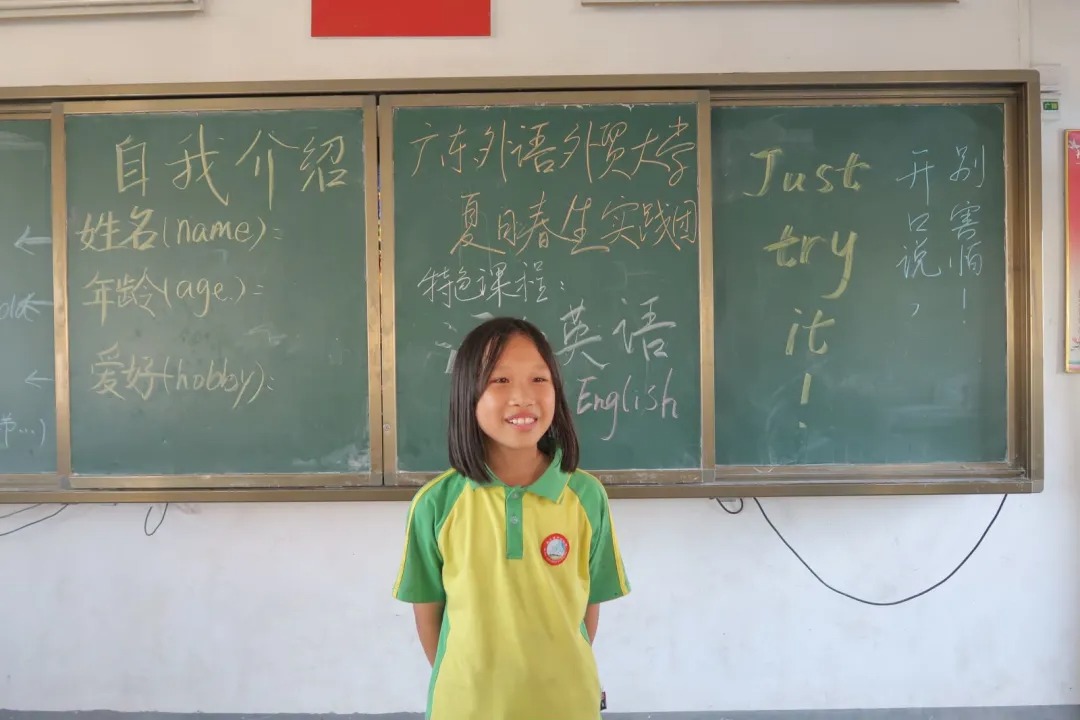 自我介绍
姓名(name):
年龄(age.):
爱好(hobby):
广东外语外贸大学
夏日春生实践团
特色课程:
英语
English
Just
try
it
!
别害怕!
开口说,